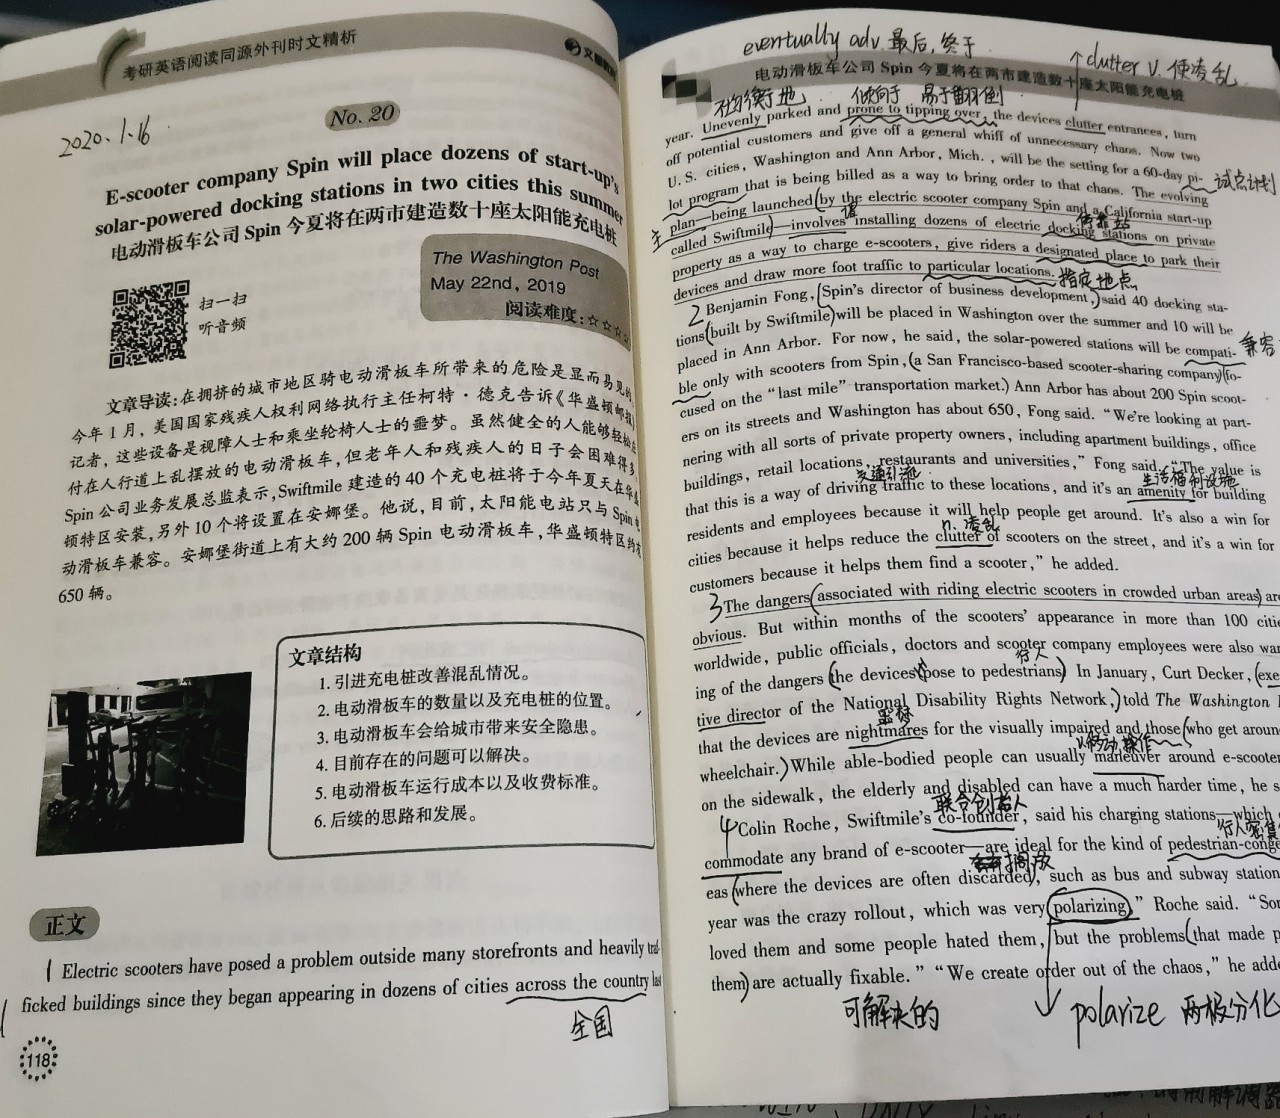 考研英语阅读同源外刊时文精析
2020.1.16
No. 20
E-scooter company Spin will place dozens of start-up's
solar-powered docking stations in two cities this summer
电动滑板车公司 Spin 今夏将在两市建造数十座太阳能充电桩
扫一扫
听音频
The Washington Post
May 22nd, 2019
阅读难度:☆☆☆
文章导读:在拥挤的城市地区骑电动滑板车所带来的危险是显而易见的,
今年 1 月, 美国国家残疾人权利网络执行主任柯特·德克告诉《华盛顿邮报》
记者, 这些设备是视障人士和乘坐轮椅人士的噩梦。虽然健全的人能够轻松应
付在人行道上乱摆放的电动滑板车,但老年人和残疾人的日子会困难得多。
Spin 公司业务发展总监表示,Swiftmile 建造的 40 个充电桩将于今年夏天在华盛
顿特区安装,另外 10 个将设置在安娜堡。他说,目前,太阳能电站只与 Spin 电
动滑板车兼容。安娜堡街道上有大约 200 辆 Spin 电动滑板车,华盛顿特区约有
650 辆。
文章结构
1. 引进充电桩改善混乱情况。
2. 电动滑板车的数量以及充电桩的位置。
3. 电动滑板车会给城市带来安全隐患。
4. 目前存在的问题可以解决。
5. 电动滑板车运行成本以及收费标准。
6. 后续的思路和发展。
正文
1 Electric scooters have posed a problem outside many storefronts and heavily traf-
ficked buildings since they began appearing in dozens of cities across the country last
全国
118
eventually adv. 最后, 终于
clutter v. 使凌乱
电动滑板车公司 Spin 今夏将在两市建造数十座太阳能充电桩
不均衡地 倾向于 易于翻倒
year. Unevenly parked and prone to tipping over, the devices clutter entrances, turn
off potential customers and give off a general whiff of unnecessary chaos. Now two
U. S. cities, Washington and Ann Arbor, Mich. , will be the setting for a 60-day pi-
试点计划
lot program that is being billed as a way to bring order to that chaos. The evolving
plan—being launched by the electric scooter company Spin and a California start-up
主 谓 停靠站
called Swiftmile—involves installing dozens of electric docking stations on private
property as a way to charge e-scooters, give riders a designated place to park their
devices and draw more foot traffic to particular locations. 指定地点
2 Benjamin Fong, Spin's director of business development, said 40 docking sta-
tions built by Swiftmile will be placed in Washington over the summer and 10 will be
placed in Ann Arbor. For now, he said, the solar-powered stations will be compati-
兼容
ble only with scooters from Spin, a San Francisco-based scooter-sharing company fo-
cused on the "last mile" transportation market. Ann Arbor has about 200 Spin scoot-
ers on its streets and Washington has about 650, Fong said. "We're looking at part-
nering with all sorts of private property owners, including apartment buildings, office
buildings, retail locations, restaurants and universities," Fong said. "The value is
交通引流 生活福利设施
that this is a way of driving traffic to these locations, and it's an amenity for building
residents and employees because it will help people get around. It's also a win for
n. 凌乱
cities because it helps reduce the clutter of scooters on the street, and it's a win for
customers because it helps them find a scooter," he added.
3 The dangers associated with riding electric scooters in crowded urban areas are
obvious. But within months of the scooters' appearance in more than 100 citie
worldwide, public officials, doctors and scooter company employees were also war
行人
ing of the dangers the devices pose to pedestrians. In January, Curt Decker, exe
tive director of the National Disability Rights Network, told The Washington
噩梦
that the devices are nightmares for the visually impaired and those who get aroun
移动, 操作
wheelchair. While able-bodied people can usually maneuver around e-scooter
on the sidewalk, the elderly and disabled can have a much harder time, he s
联合创始人
4 Colin Roche, Swiftmile's co-founder, said his charging stations—which
行人密集
commodate any brand of e-scooter—are ideal for the kind of pedestrian-conge
摆放
eas where the devices are often discarded, such as bus and subway station
year was the crazy rollout, which was very polarizing," Roche said. "Son
loved them and some people hated them, but the problems that made p
them are actually fixable." "We create order out of the chaos," he adde
可解决的
polarize 两极分化